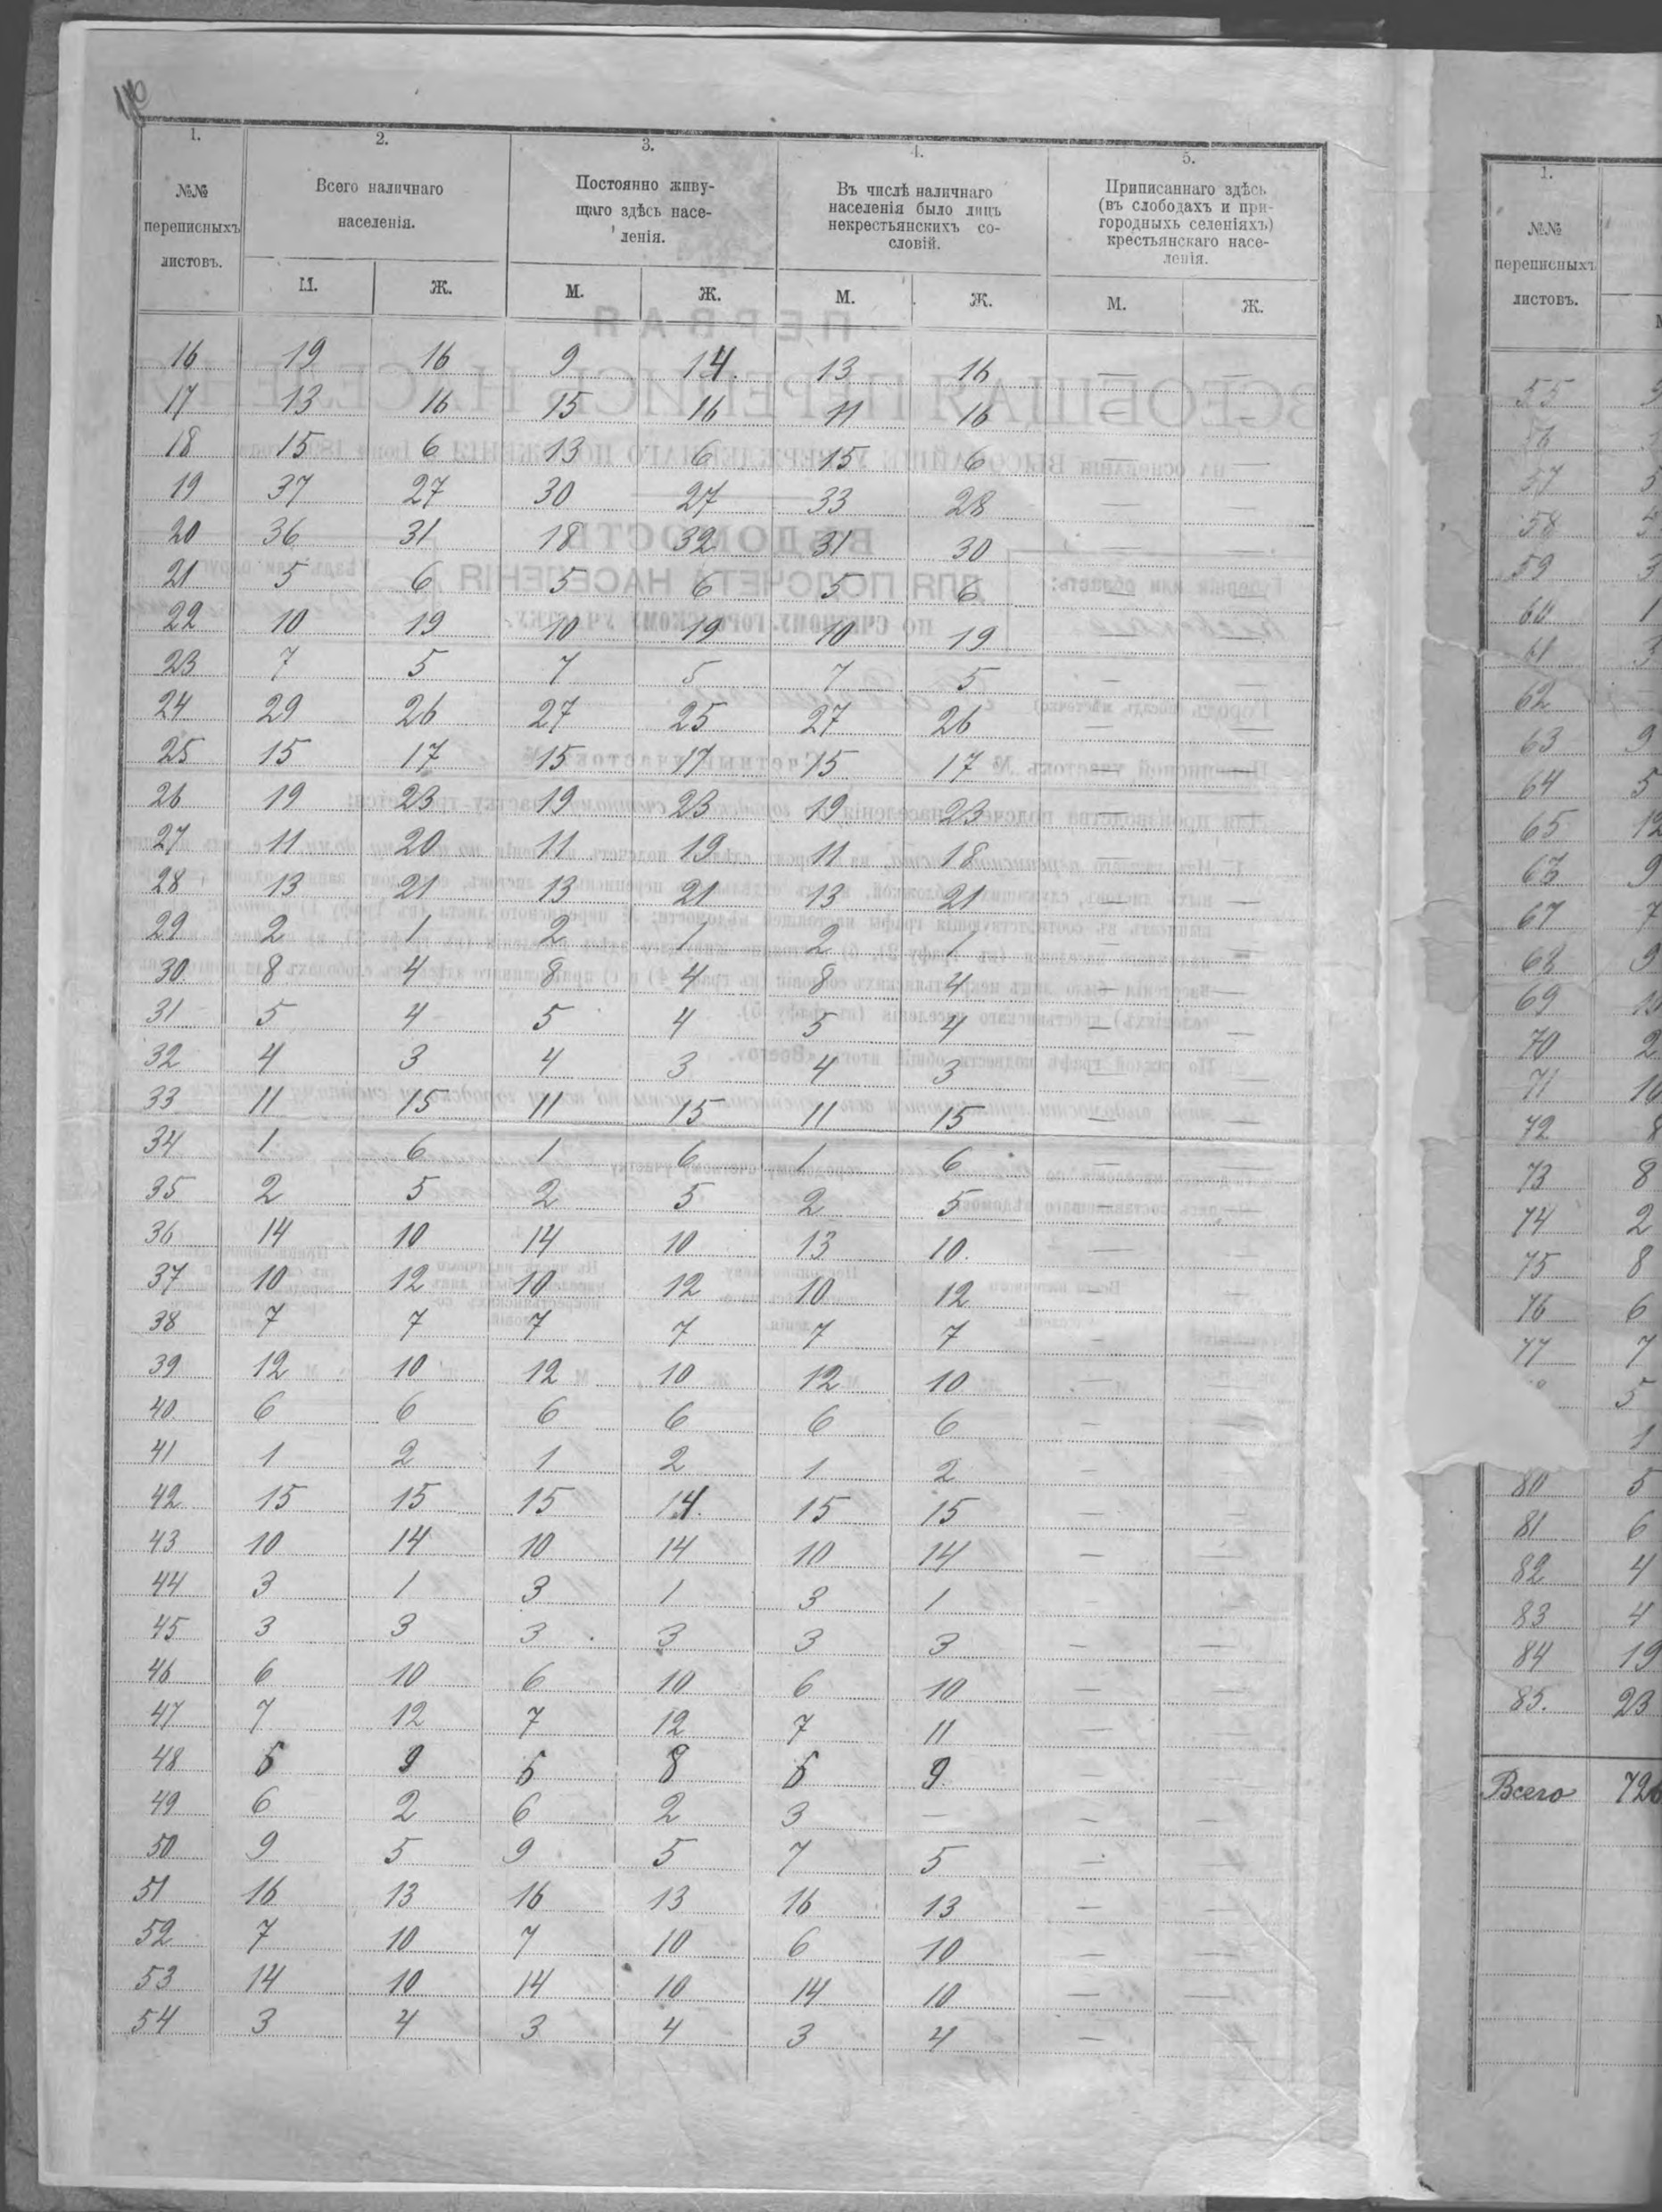 1. 2. 3. 4. 5.
№№ переписныхъ листовъ. Всего наличнаго населенія. Постоянно живущаго здѣсь населенія. Въ числѣ наличнаго населенія было лицъ некрестьянскихъ сословій. Приписаннаго здѣсь (въ слободахъ и пригородныхъ селеніяхъ) крестьянскаго населенія.
М. Ж. М. Ж. М. Ж. М. Ж.
16 19 16 9 14. 13 16 — —
17 13 16 15 16 11 16 — —
18 15 6 13 6 15 6 — —
19 37 27 30 27 33 28 — —
20 36 31 18 32 31 30 — —
21 5 6 5 6 5 6 — —
22 10 19 10 19 10 19 — —
23 7 5 7 5 7 5 — —
24 29 26 27 25 27 26 — —
25 15 17 15 17 15 17 — —
26 19 23 19 23 19 23 — —
27 11 20 11 19 11 18 — —
28 13 21 13 21 13 21 — —
29 2 1 2 1 2 1 — —
30. 8 4 8 4 8 4 — —
31 5 4 5 4 5 4 — —
32 4 3 4 3 4 3 — —
33 11 15 11 15 11 15 — —
34 1 6 1 6 1 6 — —
35 2 5 2 5 2 5 — —
36 14 10 14 10 13 10. — —
37 10 12 10 12 10 12 — —
38 7 7 7 7 7 7 — —
39 12 10 12 10 12 10 — —
40. 6 6 6 6 6 6 — —
41 1 2 1 2 1 2 — —
42 15 15 15 14. 15 15 — —
43 10 14 10 14 10 14 — —
44 3 1 3 1 3 1 — —
45 3 3 3 3 3 3 — —
46 6 10 6 10 6 10 — —
47 7 12 7 12 7 11 — —
48 5 9 5 8 5 9 — —
49 6 2 6 2 3 — — —
50 9 5 9 5 7 5 — —
51 16 13 16 13 16 13 — —
52 7 10 7 10 6 10 — —
53 14 10 14 10 14 10 — —
54 3 4 3 4 3 4 — —
1.
№№ переписныхъ листовъ.
55
56
57 5
58
59 3
60 1
61 3
62 —
63 9
64 5
65 12
66 9
67 7
68 9
69
70 2
71 16
72 8
73 8
74 2
75 8
76 6
77 7
5
1
80 5
81 6
82 4
83 4
84 19
85. 23
Всего 726